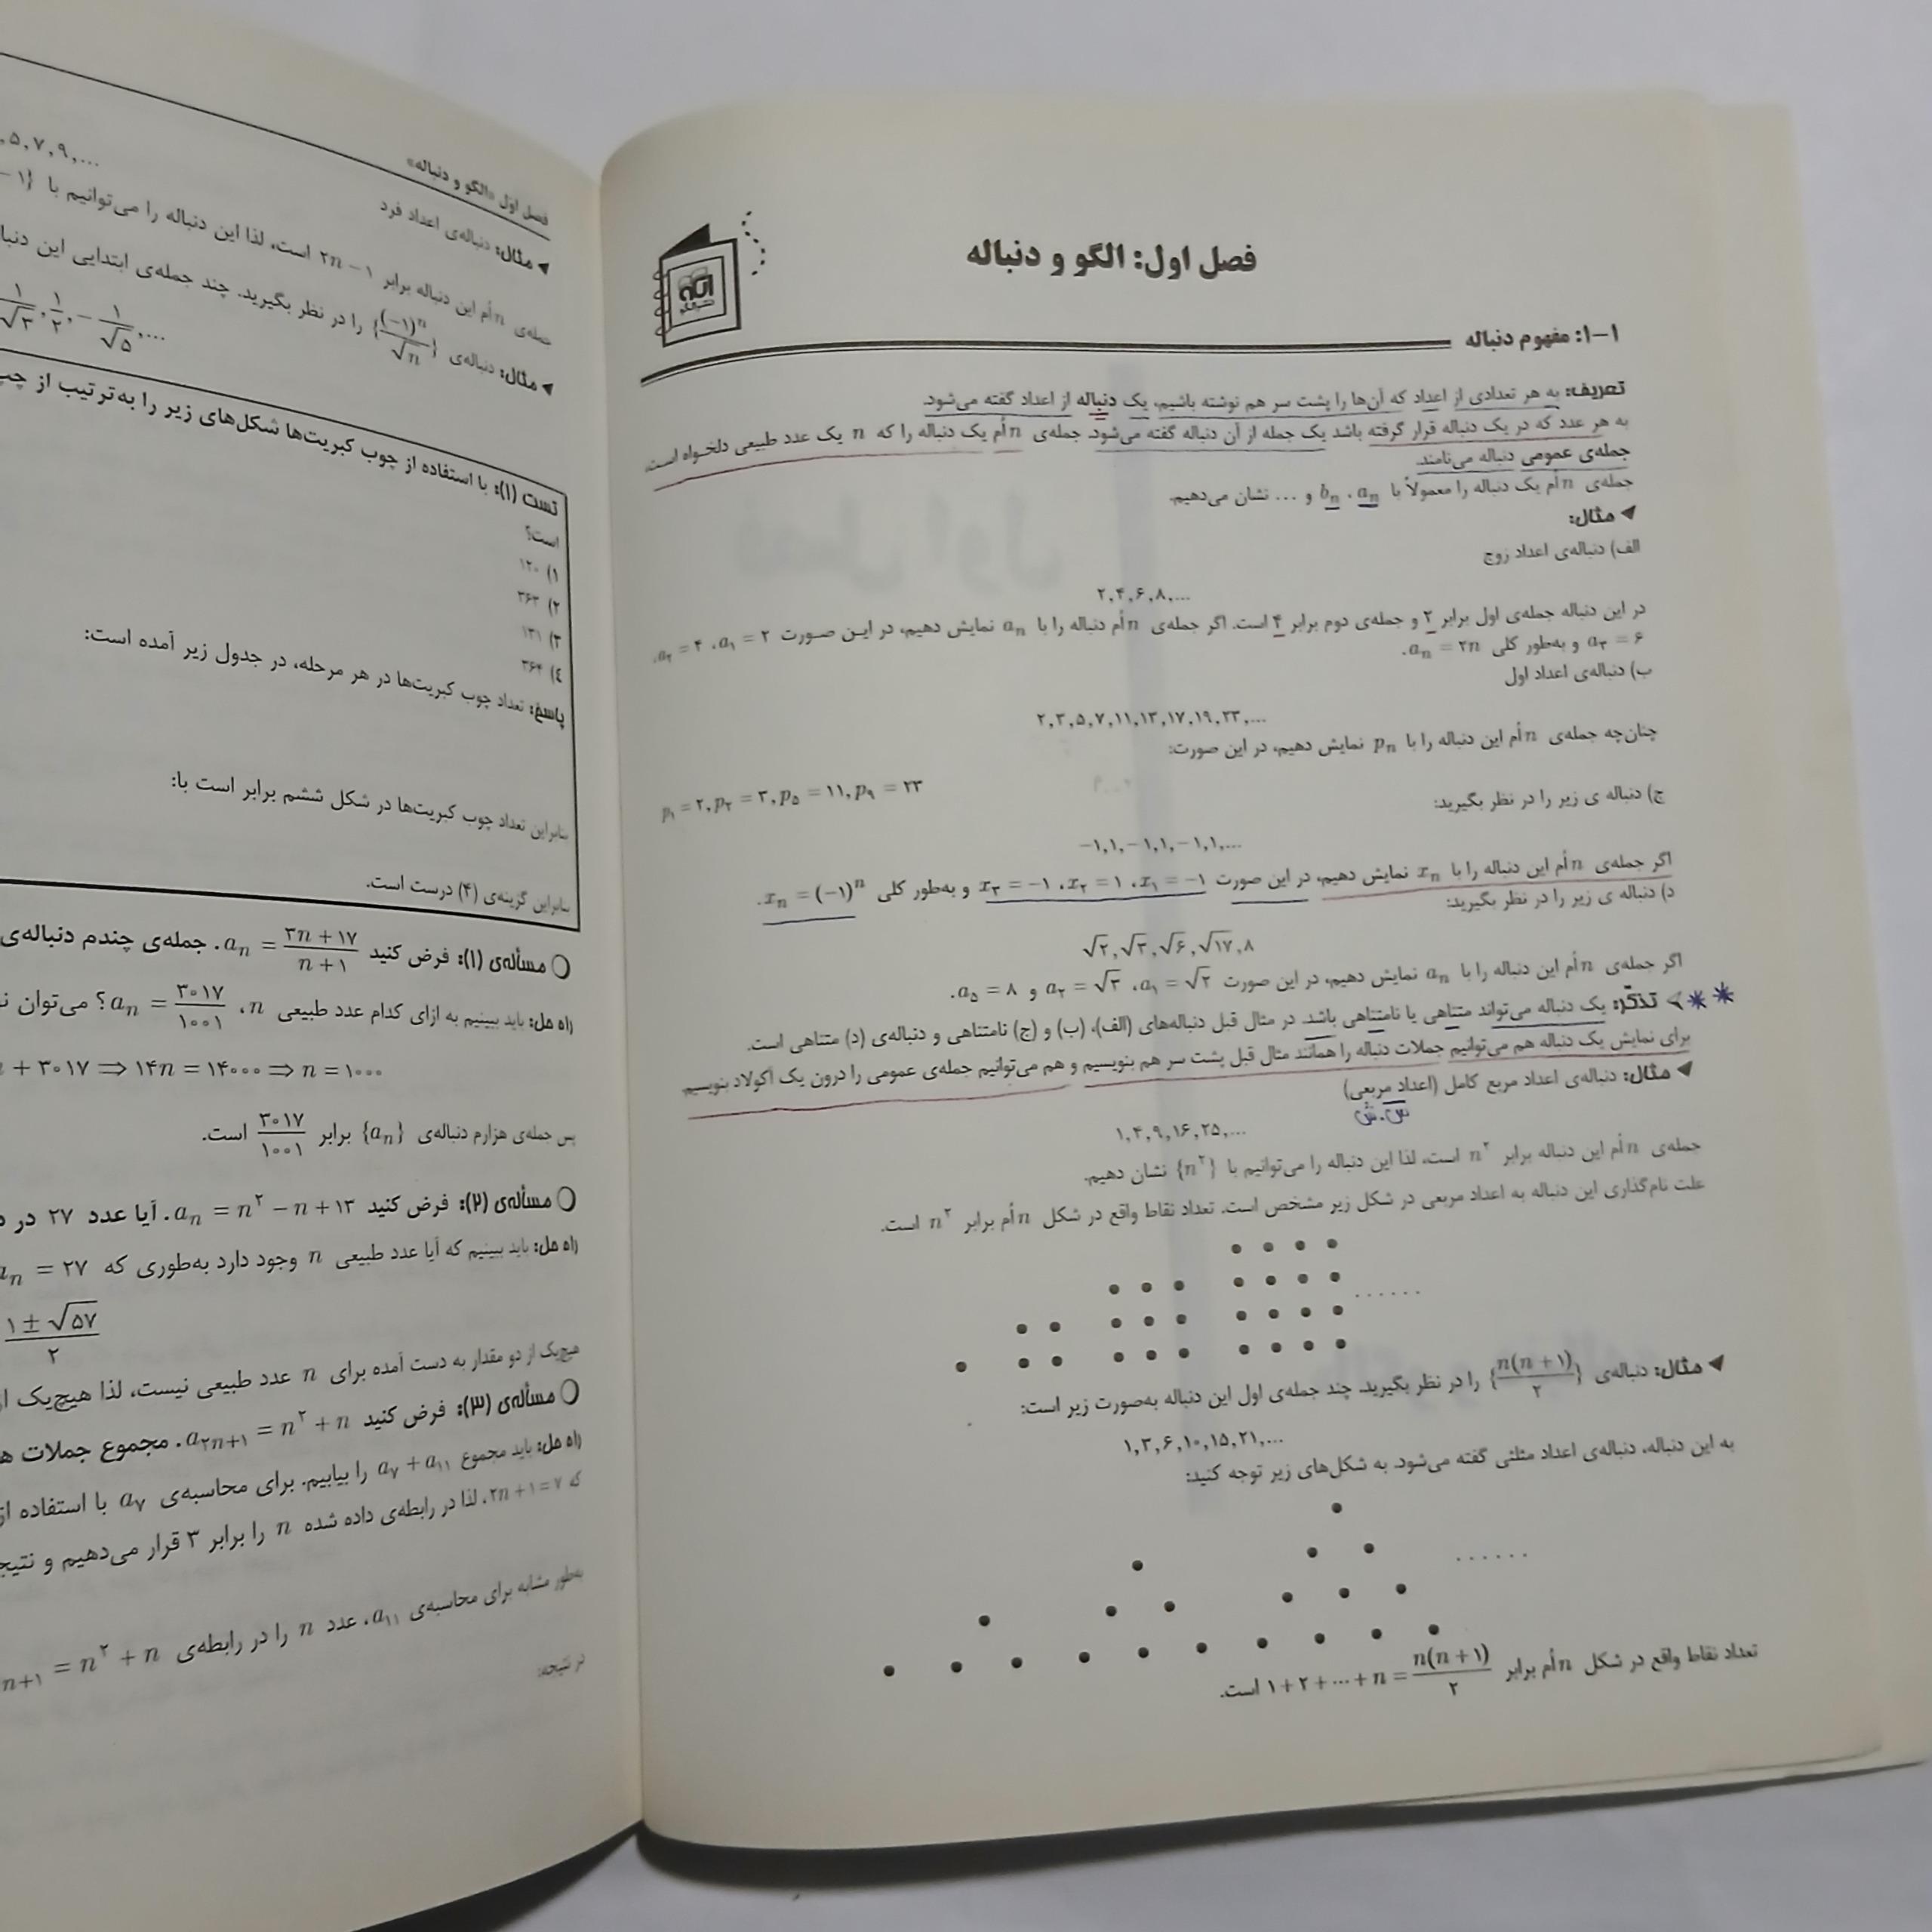 فصل اول: الگو و دنباله
۱-۱: مفهوم دنباله
تعریف: به هر تعدادی از اعداد که آن‌ها را پشت سر هم نوشته باشیم، یک دنباله از اعداد گفته می‌شود.
به هر عدد که در یک دنباله قرار گرفته باشد یک جمله از آن دنباله گفته می‌شود. جمله‌ی n اُم یک دنباله را که n یک عدد طبیعی دلخواه است،
جمله‌ی عمومی دنباله می‌نامند.
جمله‌ی n اُم یک دنباله را معمولاً با aₙ ، bₙ و ... نشان می‌دهیم.
◄ مثال:
الف) دنباله‌ی اعداد زوج
۲,۴,۶,۸,...
در این دنباله جمله‌ی اول برابر ۲ و جمله‌ی دوم برابر ۴ است. اگر جمله‌ی n اُم دنباله را با aₙ نمایش دهیم، در این صورت a₁ = ۲ ، a₂ = ۴ ،
a₃ = ۶ و به‌طور کلی aₙ = ۲n .
ب) دنباله‌ی اعداد اول
۲,۳,۵,۷,۱۱,۱۳,۱۷,۱۹,۲۳,...
چنان‌چه جمله‌ی n اُم این دنباله را با pₙ نمایش دهیم، در این صورت:
p₁ = ۲, p₂ = ۳, p₅ = ۱۱, p₉ = ۲۳
ج) دنباله ی زیر را در نظر بگیرید:
−۱,۱,−۱,۱,−۱,۱,...
اگر جمله‌ی n اُم این دنباله را با xₙ نمایش دهیم، در این صورت x₁ = −۱ ، x₂ = ۱ ، x₃ = −۱ و به‌طور کلی xₙ = (−۱)ⁿ .
د) دنباله ی زیر را در نظر بگیرید:
√۲,√۳,√۶,√۱۷,۸
اگر جمله‌ی n اُم این دنباله را با aₙ نمایش دهیم، در این صورت a₁ = √۲ ، a₂ = √۳ و a₅ = ۸ .
** ➤ تذکّر: یک دنباله می‌تواند متناهی یا نامتناهی باشد. در مثال قبل دنباله‌های (الف)، (ب) و (ج) نامتناهی و دنباله‌ی (د) متناهی است.
برای نمایش یک دنباله هم می‌توانیم جملات دنباله را همانند مثال قبل پشت سر هم بنویسیم و هم می‌توانیم جمله‌ی عمومی را درون یک آکولاد بنویسیم.
◄ مثال: دنباله‌ی اعداد مربع کامل (اعداد مربعی)
۱,۴,۹,۱۶,۲۵,...
جمله‌ی n اُم این دنباله برابر n² است، لذا این دنباله را می‌توانیم با {n²} نشان دهیم.
علت نام‌گذاری این دنباله به اعداد مربعی در شکل زیر مشخص است. تعداد نقاط واقع در شکل n اُم برابر n² است.
......
◄ مثال: دنباله‌ی {n(n+۱)/۲} را در نظر بگیرید. چند جمله‌ی اول این دنباله به‌صورت زیر است:
۱,۳,۶,۱۰,۱۵,۲۱,...
به این دنباله، دنباله‌ی اعداد مثلثی گفته می‌شود. به شکل‌های زیر توجه کنید:
......
تعداد نقاط واقع در شکل n اُم برابر ۱+۲+...+n = n(n+۱)/۲ است.
فصل اول «الگو و دنباله»
◄ مثال: دنباله‌ی اعداد فرد
,۵,۷,۹,...
جمله‌ی n اُم این دنباله برابر ۲n−۱ است، لذا این دنباله را می‌توانیم با {−۱
◄ مثال: دنباله‌ی {(−۱)ⁿ/√n} را در نظر بگیرید. چند جمله‌ی ابتدایی این
۱/√۳, ۱/۲, −۱/√۵,...
تست (۱): با استفاده از چوب کبریت‌ها شکل‌های زیر را به‌ترتیب از
است؟
۱) ۱۲۰
۲) ۳۶۳
۳) ۱۳۱
۴) ۳۶۴
پاسخ: تعداد چوب کبریت‌ها در هر مرحله، در جدول زیر آمده است:
بنابراین تعداد چوب کبریت‌ها در شکل ششم برابر است با:
بنابراین گزینه‌ی (۴) درست است.
مسأله‌ی (۱): فرض کنید aₙ = (۳n+۱۷)/(n+۱) . جمله‌ی چندم دنباله‌ی
راه حل: باید ببینیم به ازای کدام عدد طبیعی n ، aₙ = ۳۰۱۷/۱۰۰۱ ؟ می‌توان
+ ۳۰۱۷ ⇒ ۱۴n = ۱۴۰۰۰ ⇒ n = ۱۰۰۰
پس جمله‌ی هزارم دنباله‌ی {aₙ} برابر ۳۰۱۷/۱۰۰۱ است.
مسأله‌ی (۲): فرض کنید aₙ = n² − n + ۱۳ . آیا عدد ۲۷ در
راه حل: باید ببینیم که آیا عدد طبیعی n وجود دارد به‌طوری که aₙ = ۲۷
(۱ ± √۵۷)/۲
هیچ‌یک از دو مقدار به دست آمده برای n عدد طبیعی نیست، لذا هیچ‌یک
مسأله‌ی (۳): فرض کنید a₂ₙ₊₁ = n² + n . مجموع جملات
راه حل: باید مجموع a₇ + a₁₁ را بیابیم. برای محاسبه‌ی a₇ با استفاده از
که ۲n+۱=۷ ، لذا در رابطه‌ی داده شده n را برابر ۳ قرار می‌دهیم و
به‌طور مشابه برای محاسبه‌ی a₁₁ ، عدد n را در رابطه‌ی n+۱ = n² + n
در نتیجه: